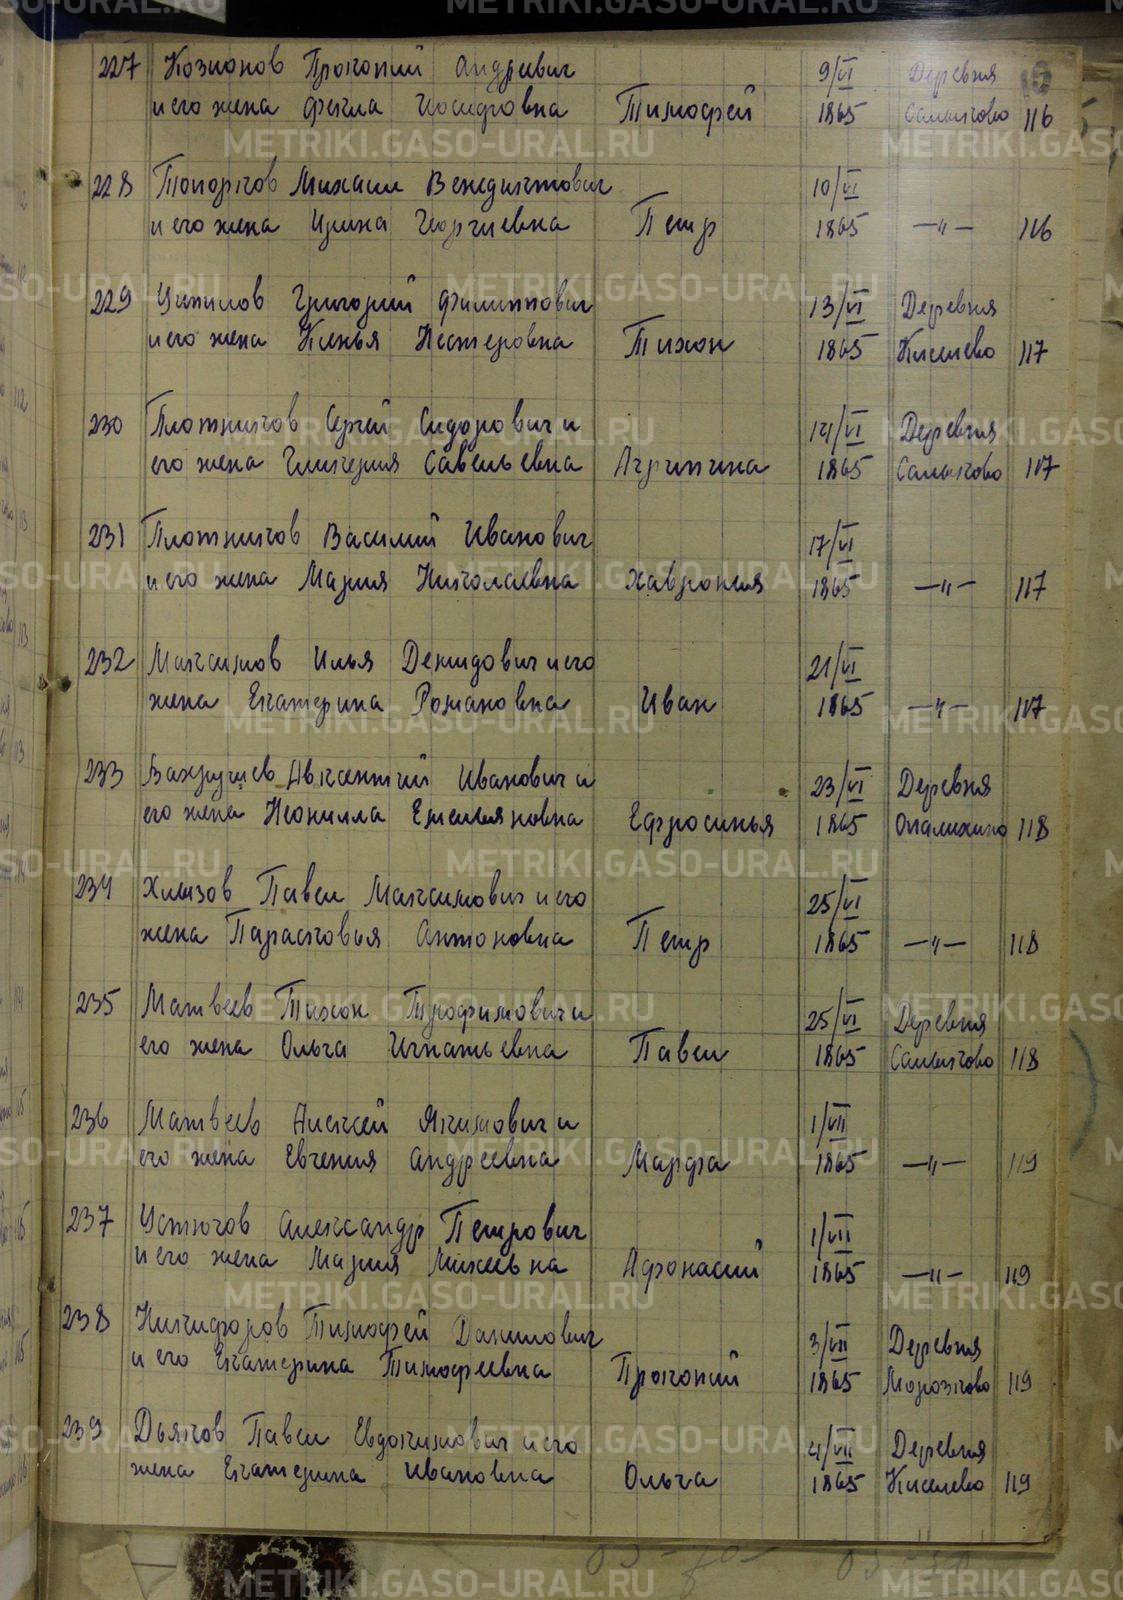 227 Козионов Прокопий Андреевич 9/VI Деревня
и его жена Фекла Иосифовна Тимофей 1865 Салычово 116
228 Топорков Михаил Венедиктович 10/VI
и его жена Ирина Георгиевна Петр 1865 —"— 116
229 Григорий Филиппович 13/VI Деревня
и его жена Ксенья Нестеровна Тихон 1865 Киселево 117
230 Плотников Сергей Сидорович и 14/VI Деревня
его жена Гликерия Савельевна Агрипина 1865 117
231 Плотников Василий Иванович 17/VI
и его жена Мария Николаевна Хаврония 1865 —"— 117
232 Максимов Илья Демидович и его 21/VI
жена Екатерина Романовна Иван 1865 —"— 117
233 Вахрушев Авксентий Иванович и 23/VI Деревня
его жена Неонилла Емельяновна Ефросинья 1865 Опалихино 118
234 Хлызов Павел Максимович и его 25/VI
жена Парасковья Антоновна Петр 1865 —"— 118
235 Матвеев Тихон Трофимович и 25/VI Деревня
его жена Ольга Игнатьевна Павел 1865 118
236 Матвеев Алексей Якимович и 1/VII
его жена Евгения Андреевна Марфа 1865 —"— 119
237 Устюгов Александр Петрович 1/VII
и его жена Мария Михеевна Афонасий 1865 —"— 119
238 Никифоров Тимофей Данилович 3/VII Деревня
и его Екатерина Тимофеевна Прокопий 1865 Морозково 119
239 Дьяков Павел Евдокимович и его 4/VII Деревня
жена Екатерина Ивановна Ольга 1865 Киселево 119
METRIKI.GASO-URAL.RU